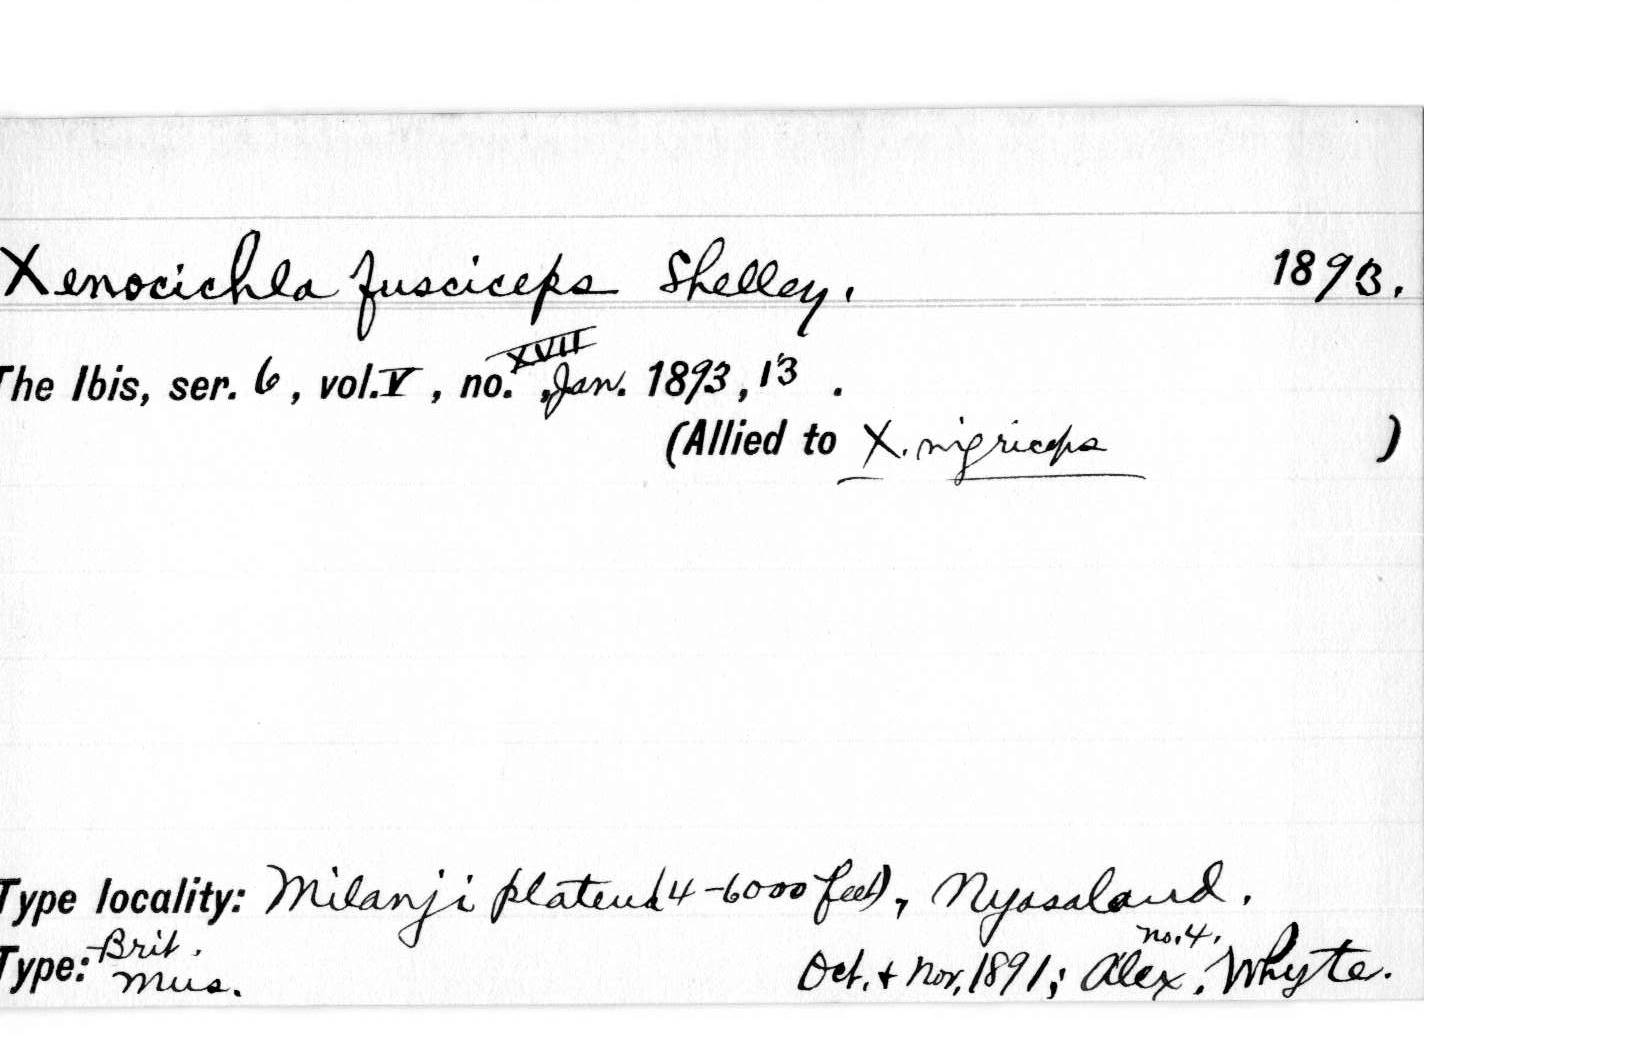 Xenocichla fusciceps Shelley. 1893.
The Ibis, ser. 6, vol. V, no. XVII, Jan. 1893, 13.
(Allied to X. nigriceps )
Type locality: Milanji plateau (4-6000 feet), Nyasaland.
Type: Brit. Mus. Oct. + Nov. 1891; no. 4. Alex. Whyte.